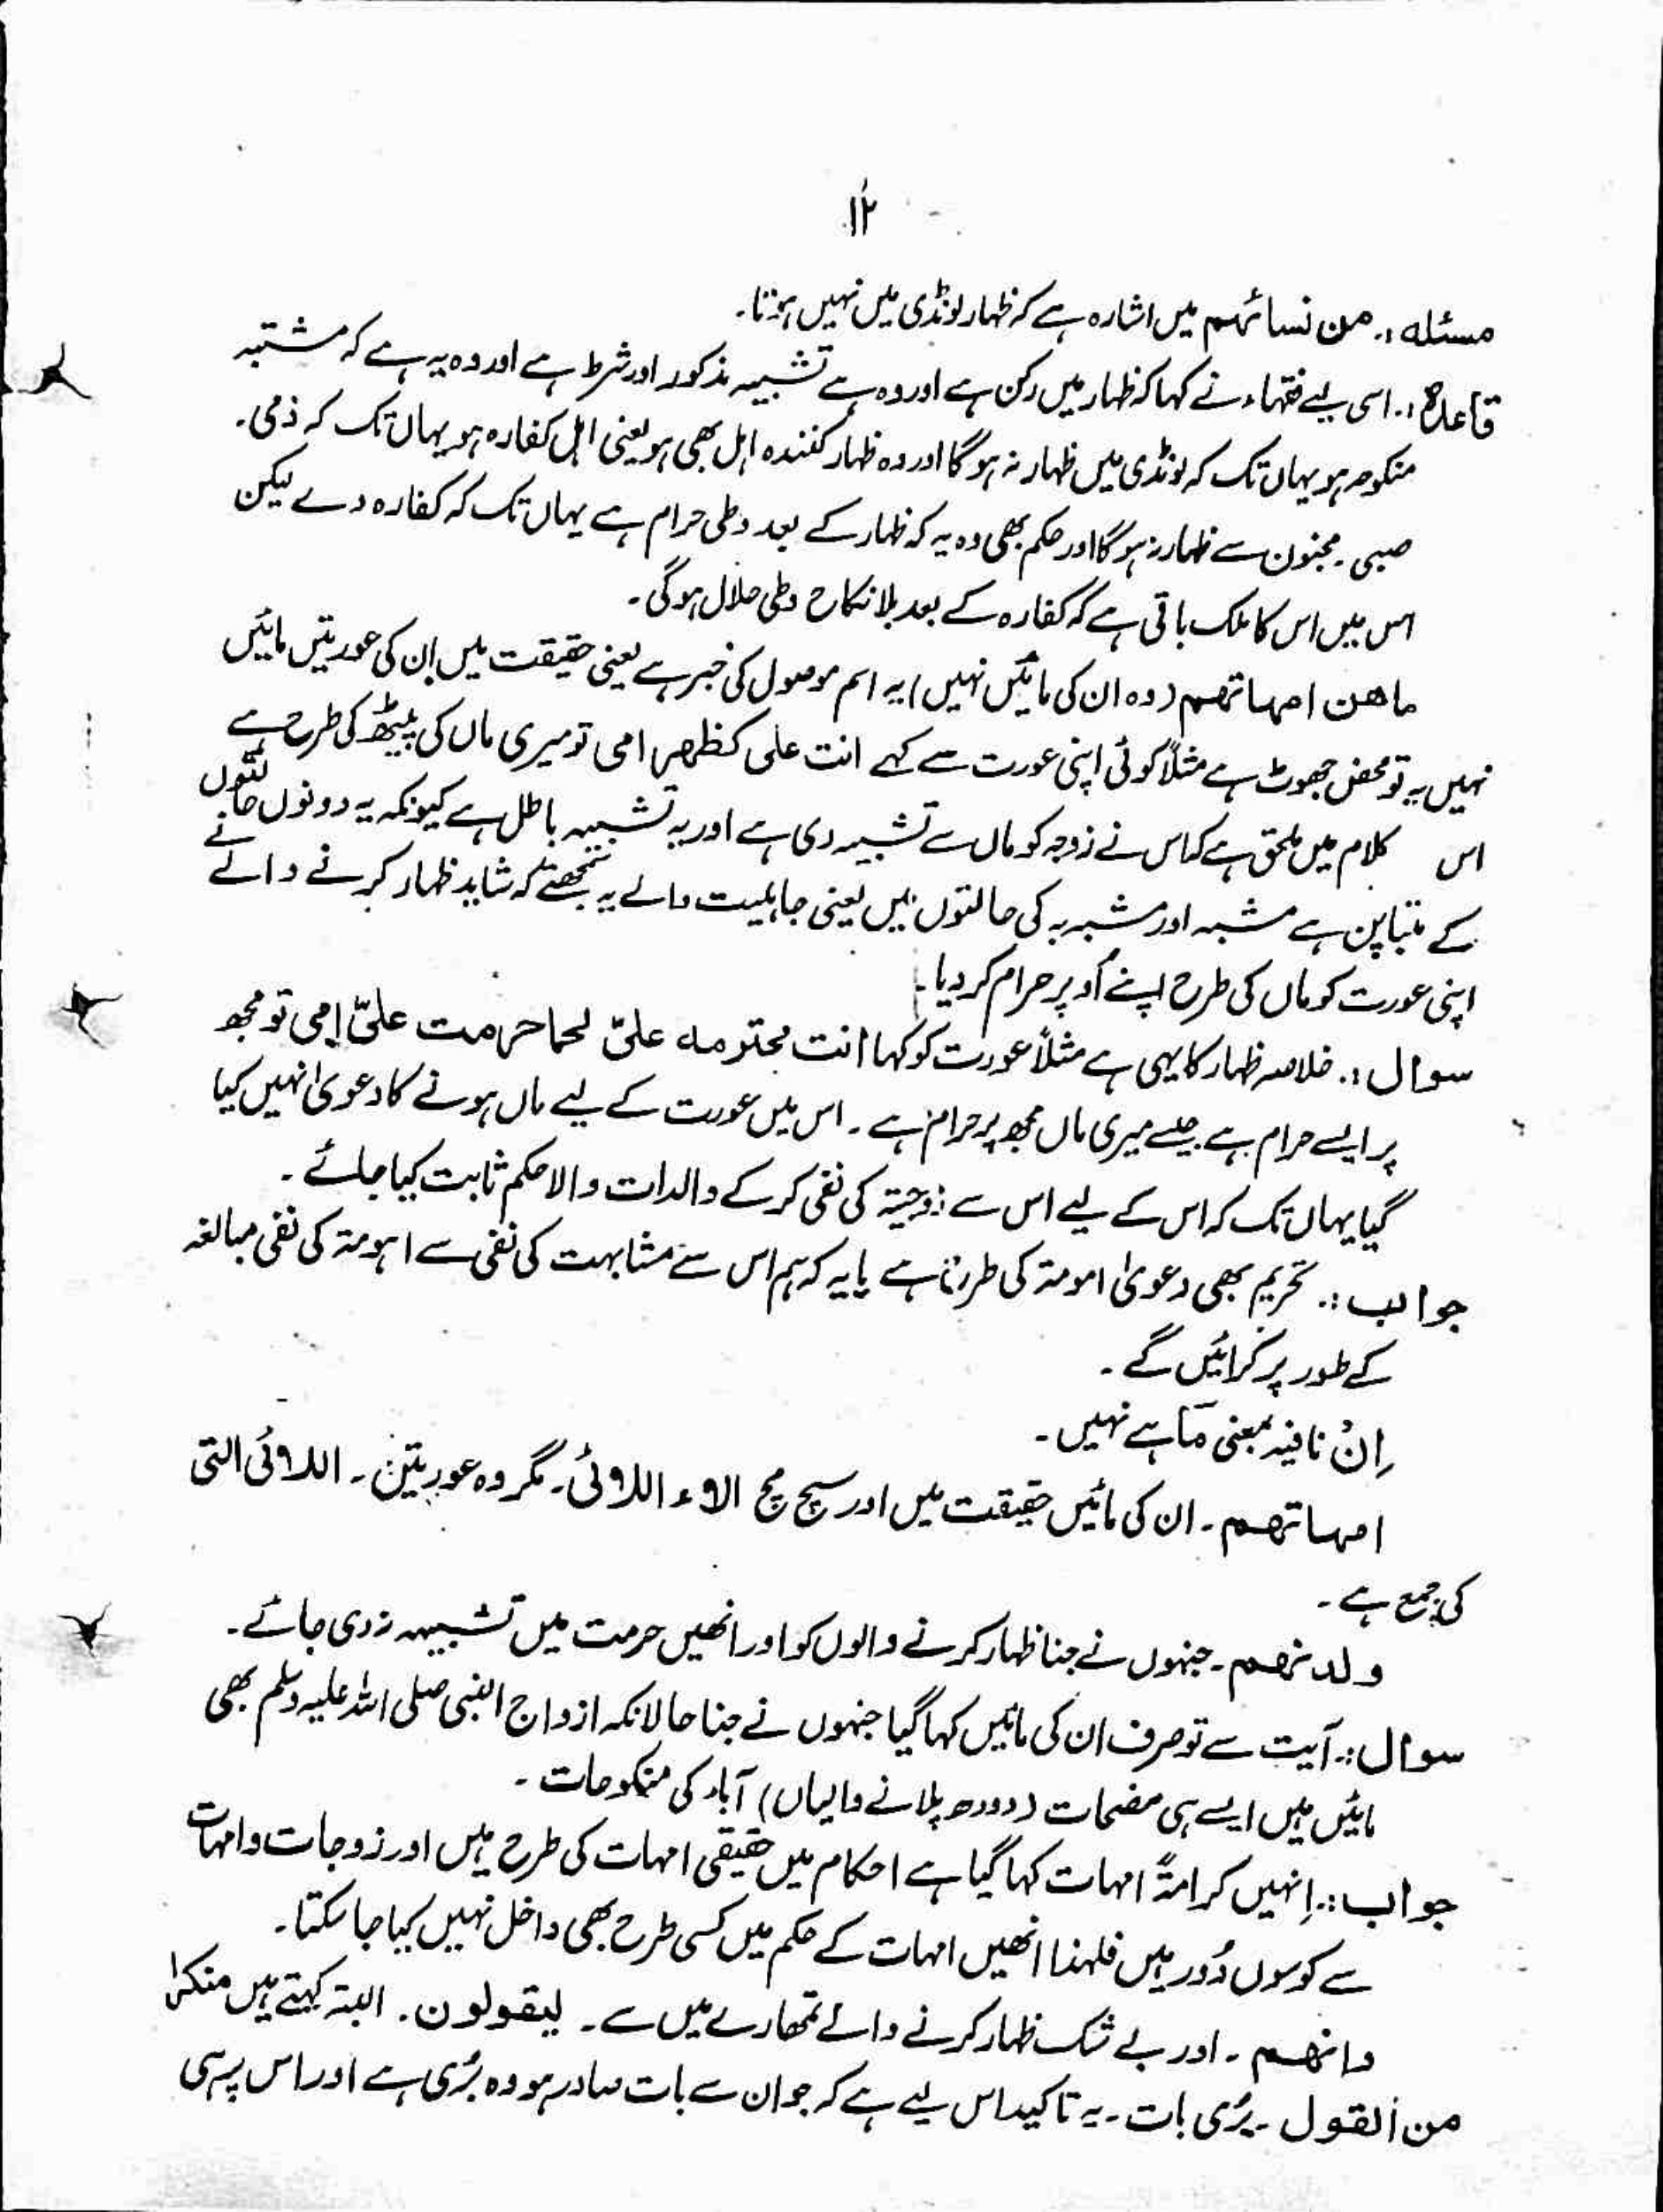 ۱۲
مسئلہ:۔ من نسائہم میں اشارہ ہے کہ ظہار لونڈی میں نہیں ہوتا۔
قاعدہ:۔ اسی لیے فقہاء نے کہا کہ ظہار میں رکن ہے اور وہ ہے تشبیہ مذکور اور شرط ہے اور وہ یہ ہے کہ مشتبہ
منکوحہ ہو یہاں تک کہ لونڈی میں ظہار نہ ہوگا اور وہ ظہار کنندہ اہل بھی ہو یعنی اہل کفارہ ہو یہاں تک کہ ذمی۔
صبی۔ مجنون سے ظہار نہ ہوگا اور حکم بھی وہ یہ کہ ظہار کے بعد وطی حرام ہے یہاں تک کہ کفارہ دے لیکن
اس میں اس کا ملک باقی ہے کہ کفارہ کے بعد بلا نکاح وطی حلال ہوگی۔
ماھن امہاتھم (وہ ان کی مائیں نہیں) یہ اسم موصول کی خبر ہے یعنی حقیقت میں ان کی عورتیں مائیں
نہیں یہ تو محض جھوٹ ہے مثلاً کوئی اپنی عورت سے کہے انت علی کظھر امی تو میری ماں کی پیٹھ کی طرح ہے
اس کلام میں ملحق ہے کہ اس نے زوجہ کو ماں سے تشبیہ دی ہے اور یہ تشبیہ باطل ہے کیونکہ یہ دونوں حالتوں
کے متباین ہے مشبہ اور مشبہ بہ کی حالتوں میں یعنی جاہلیت والے یہ سمجھتے کہ شاید ظہار کرنے والے نے
اپنی عورت کو ماں کی طرح اپنے اُوپر حرام کر دیا۔
سوال:۔ خلاصہ ظہار کا یہی ہے مثلاً عورت کو کہا انت محترمہ علیّ لحما حرمت علیّ امی تو مجھ
پر ایسے حرام ہے جیسے میری ماں مجھ پر حرام ہے۔ اس میں عورت کے لیے ماں ہونے کا دعویٰ نہیں کیا
گیا یہاں تک کہ اس کے لیے اس سے زوجیتہ کی نفی کر کے والدات والا حکم ثابت کیا جائے۔
جواب:۔ تحریم بھی دعویٰ امومتہ کی طرح ہے یا یہ کہ ہم اس سے مشابہت کی نفی سے اہومتہ کی نفی مبالغہ
کے طور پر کرائیں گے۔
اِنْ نافیہ بمعنی مَا ہے نہیں۔
امہاتھم۔ ان کی مائیں حقیقت میں اور سچ مچ الاء اللائی۔ مگر وہ عورتیں۔ اللائی التی
کی جمع ہے۔
ولدنھم۔ جنہوں نے جنا ظہار کرنے والوں کو اور انھیں حرمت میں تشبیہہ نہ دی جائے۔
سوال:۔ آیت سے تو صرف ان کی مائیں کہا گیا جنہوں نے جنا حالانکہ ازواج النبی صلی اللہ علیہ وسلم بھی
مائیں ہیں ایسے ہی مضحات (دودھ پلانے والیاں) آباء کی منکوحات۔
جواب:۔ اِنہیں کرامتہً امہات کہا گیا ہے احکام میں حقیقی امہات کی طرح ہیں اور زوجات وامہات
سے کوسوں دُور ہیں فلہٰذا انھیں امہات کے حکم میں کسی طرح بھی داخل نہیں کیا جا سکتا۔
وانھم۔ اور بے شک ظہار کرنے والے تمھارے میں سے۔ لیقولون۔ البتہ کہتے ہیں منکرا
من القول۔ بُری بات۔ یہ تاکید اس لیے ہے کہ جو ان سے بات صادر ہو وہ بُری ہے اور اس پر ہی